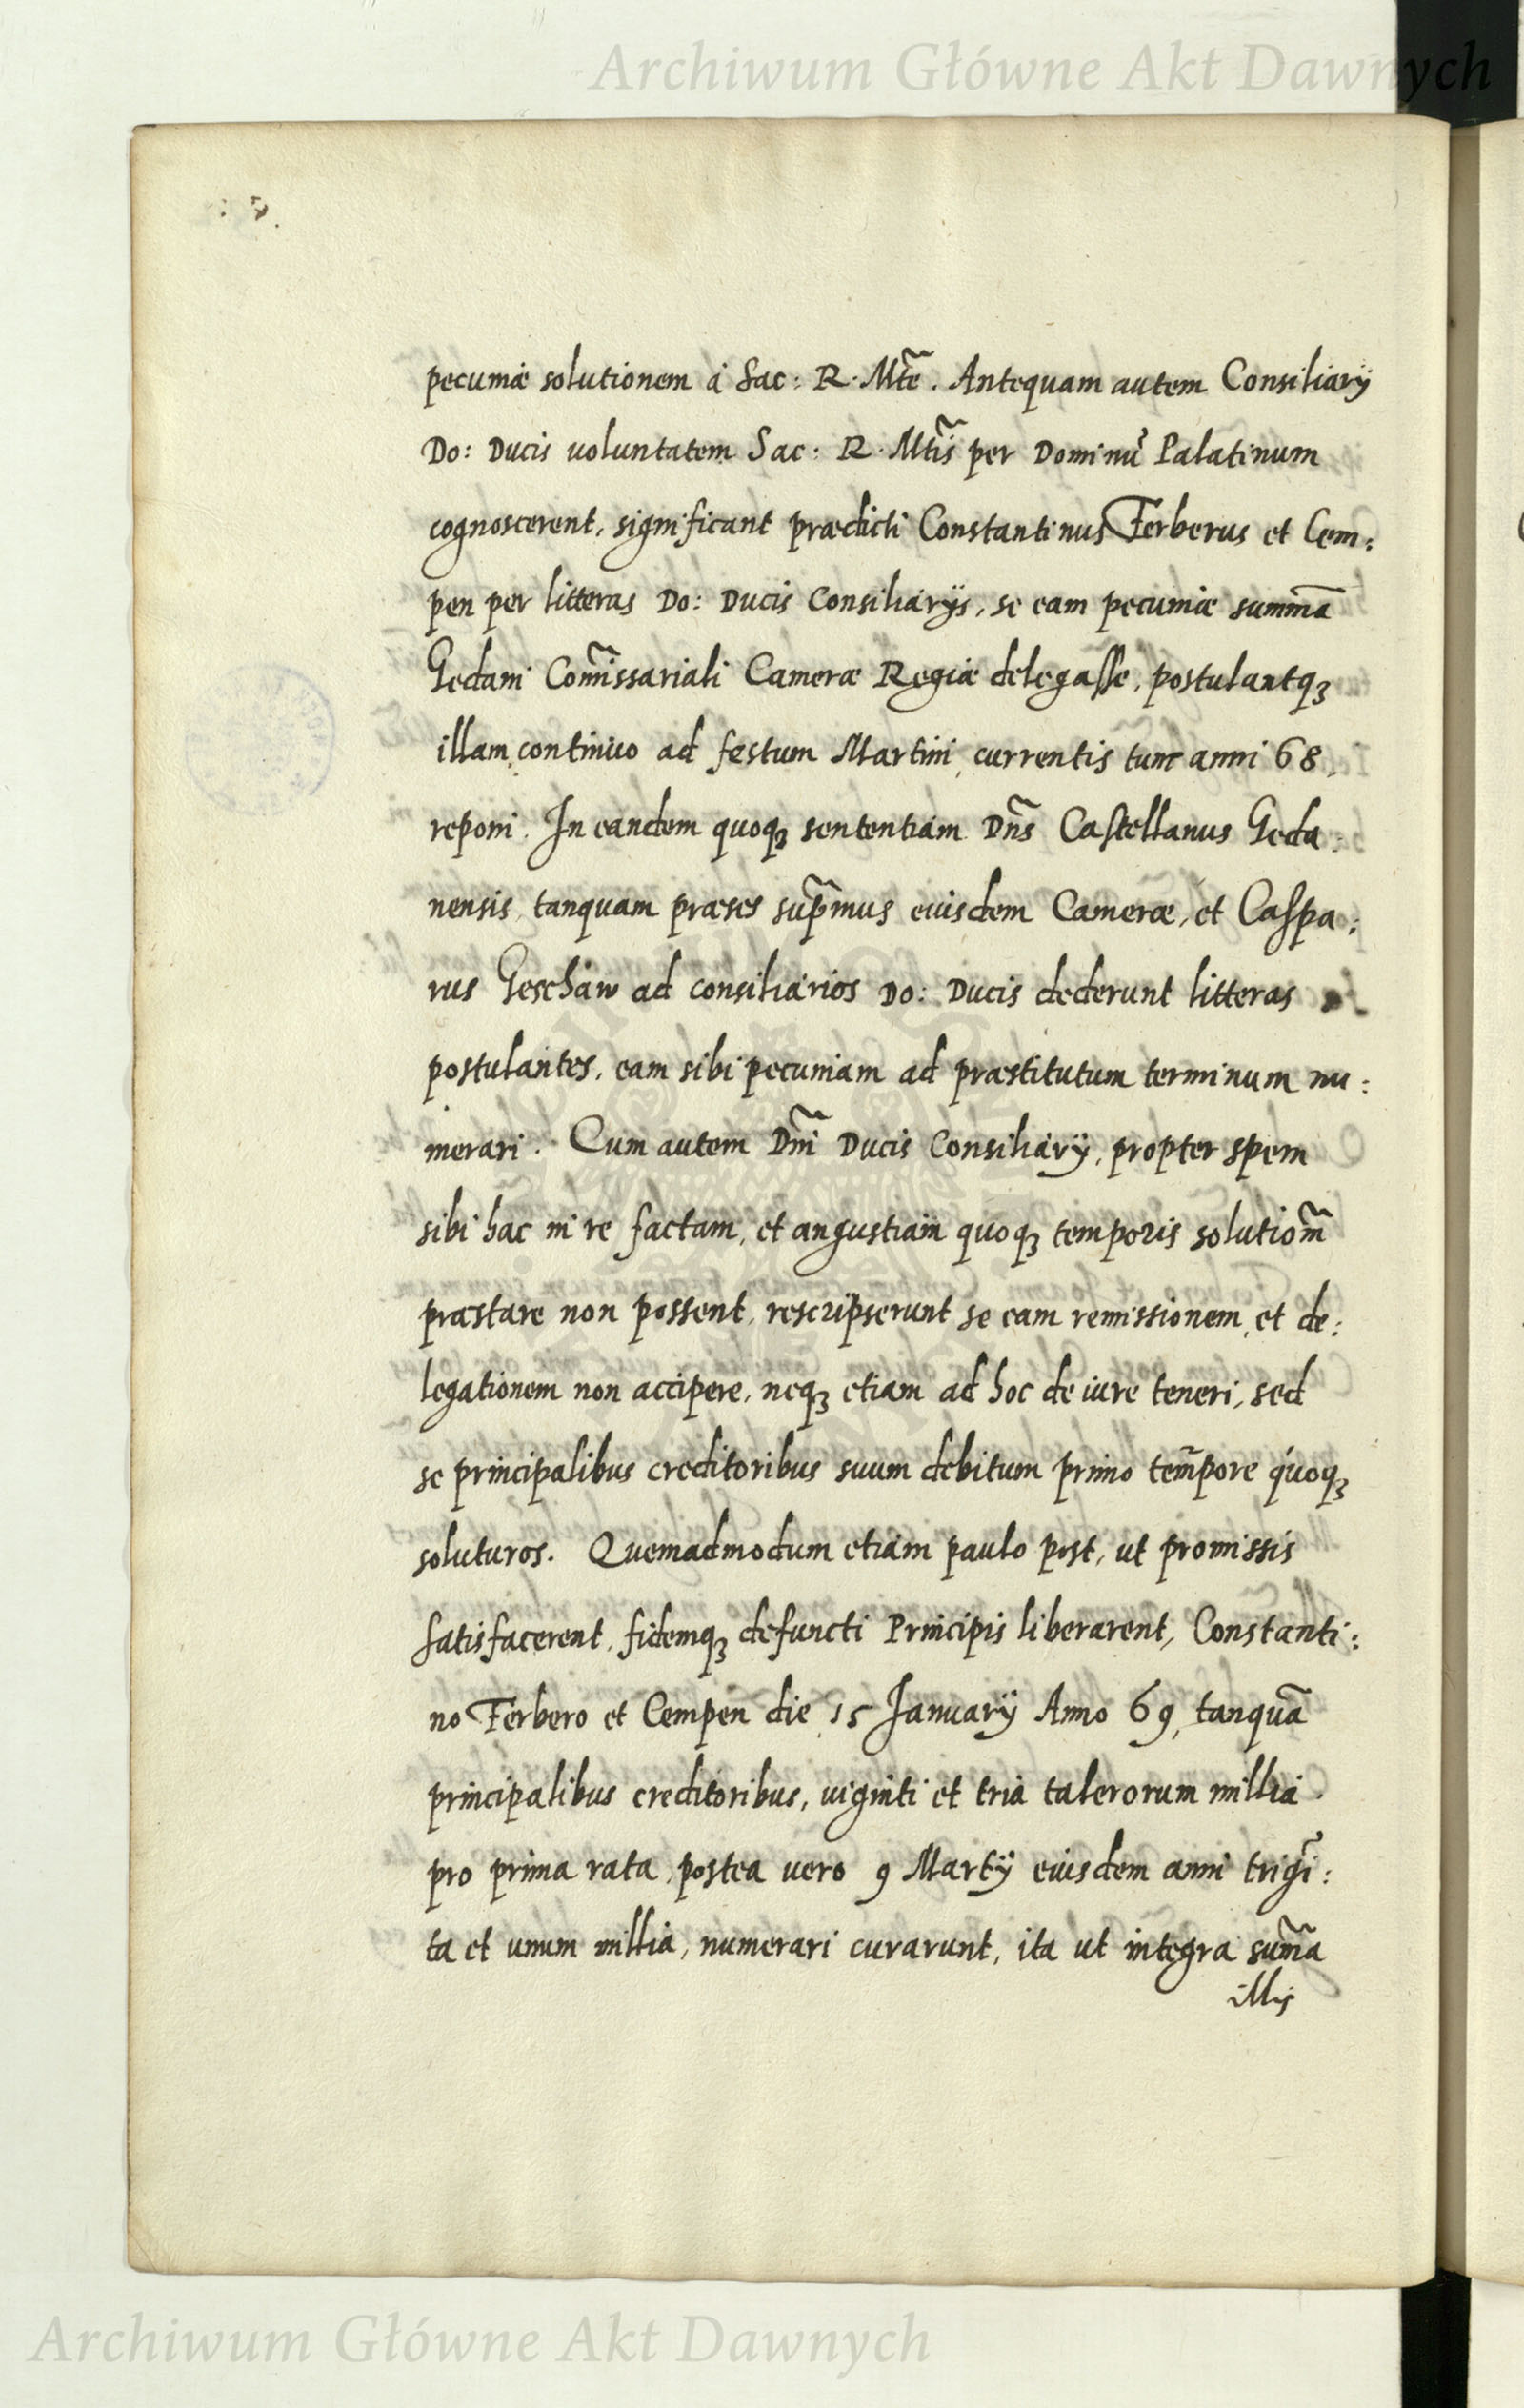 Archiwum Główne Akt Dawnych
pecuniæ solutionem à Sac: R. Mt̃e. Antequam autem Consiliarÿ
Do: Ducis uoluntatem Sac: R. Mt̃is per Dominũ Palatinum
cognoscerent, significant prædicti Constantinus Ferberus et Cem:
pen per litteras Do: Ducis Consiliarÿs, se eam pecuniæ summã
Gedani Com̃issariali Cameræ Regiæ delegasse, postulantqꝫ
illam continuo ad festum Martini currentis tunc anni 68
reponi. In eandem quoqꝫ sententiam Dñs Castellanus Geda:
nensis tanquam præses sup̃mus eiusdem Cameræ, et Caspa:
rus Geschaw ad consiliarios Do: Ducis dederunt litteras
postulantes, eam sibi pecuniam ad præstitutum terminum nu:
merari. Cum autem Dñi Ducis Consiliarÿ, propter spem
sibi hac in re factam, et angustiam quoqꝫ temporis solutiom̃
præstare non possent, rescripserunt se eam remissionem et de:
legationem non accipere, neqꝫ etiam ad hoc de iure teneri, sed
se principalibus creditoribus suum debitum primo tem̃pore quoqꝫ
soluturos. Quemadmodum etiam paulo post, ut promissis
satisfacerent, fidemqꝫ defuncti Principis liberarent, Constanti:
no Ferbero et Cempen die 15 Ianuarÿ Anno 69, tanquã
principalibus creditoribus, uiginti et tria talerorum millia
pro prima rata, postea uero 9 Martÿ eiusdem anni trigĩ:
ta et unum millia, numerari curarunt, ita ut integra sum̃a
illis
Archiwum Główne Akt Dawnych